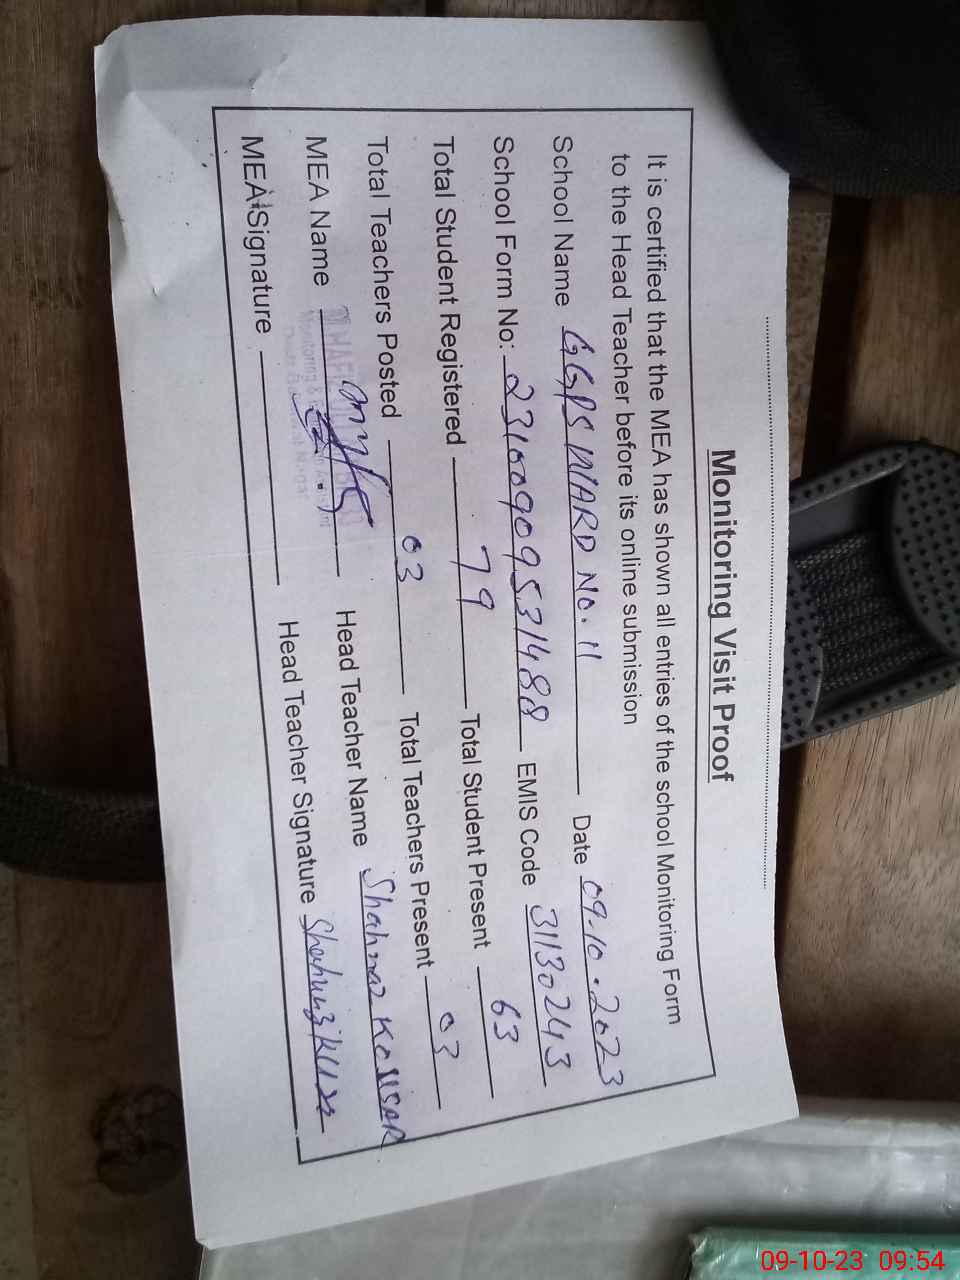 Monitoring Visit Proof
It is certified that the MEA has shown all entries of the school Monitoring Form
to the Head Teacher before its online submission
School Name GGPS WARD No. 11 Date 09-10-2023
School Form No: 23100909531488 EMIS Code 31130243
Total Student Registered 79 Total Student Present 63
Total Teachers Posted 03 Total Teachers Present 03
MEA Name Head Teacher Name Shahnaz KOUSAR
MEA Signature Head Teacher Signature
09-10-23 09:54